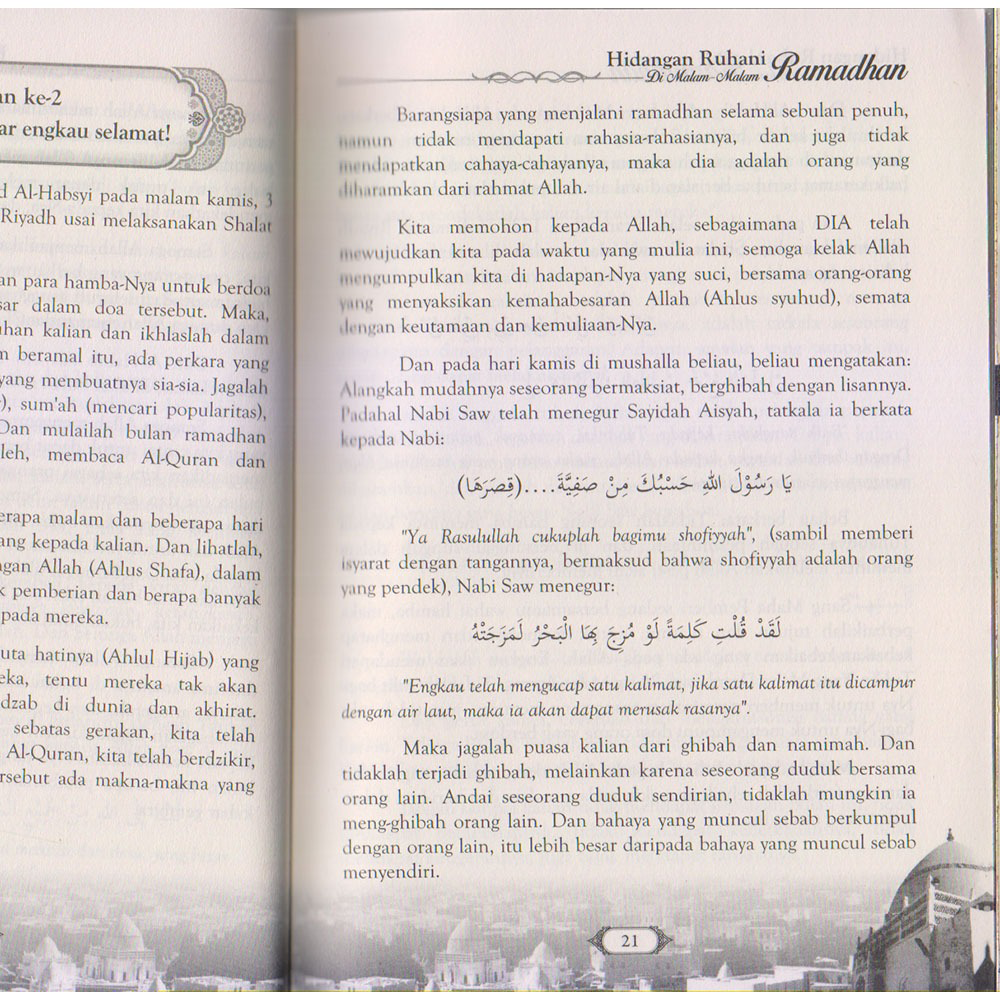 an ke-2
ar engkau selamat!
d Al-Habsyi pada malam kamis, 3
Riyadh usai melaksanakan Shalat
an para hamba-Nya untuk berdoa
sar dalam doa tersebut. Maka,
uhan kalian dan ikhlaslah dalam
n beramal itu, ada perkara yang
yang membuatnya sia-sia. Jagalah
), sum'ah (mencari popularitas),
Dan mulailah bulan ramadhan
leh, membaca Al-Quran dan
erapa malam dan beberapa hari
ang kepada kalian. Dan lihatlah,
ngan Allah (Ahlus Shafa), dalam
k pemberian dan berapa banyak
pada mereka.
uta hatinya (Ahlul Hijab) yang
eka, tentu mereka tak akan
dzab di dunia dan akhirat.
sebatas gerakan, kita telah
Al-Quran, kita telah berdzikir,
ersebut ada makna-makna yang
Hidangan Ruhani
Di Malam-Malam Ramadhan
Barangsiapa yang menjalani ramadhan selama sebulan penuh,
namun tidak mendapati rahasia-rahasianya, dan juga tidak
mendapatkan cahaya-cahayanya, maka dia adalah orang yang
diharamkan dari rahmat Allah.
Kita memohon kepada Allah, sebagaimana DIA telah
mewujudkan kita pada waktu yang mulia ini, semoga kelak Allah
mengumpulkan kita di hadapan-Nya yang suci, bersama orang-orang
yang menyaksikan kemahabesaran Allah (Ahlus syuhud), semata
dengan keutamaan dan kemuliaan-Nya.
Dan pada hari kamis di mushalla beliau, beliau mengatakan:
Alangkah mudahnya seseorang bermaksiat, berghibah dengan lisannya.
Padahal Nabi Saw telah menegur Sayidah Aisyah, tatkala ia berkata
kepada Nabi:
يَا رَسُوْلَ اللهِ حَسْبُكَ مِنْ صَفِيَّةَ....(قِصَرَهَا)
"Ya Rasulullah cukuplah bagimu shofiyyah", (sambil memberi
isyarat dengan tangannya, bermaksud bahwa shofiyyah adalah orang
yang pendek), Nabi Saw menegur:
لَقَدْ قُلْتِ كَلِمَةً لَوْ مُزِجَ بِهَا الْبَحْرُ لَمَزَجَتْهُ
"Engkau telah mengucap satu kalimat, jika satu kalimat itu dicampur
dengan air laut, maka ia akan dapat merusak rasanya".
Maka jagalah puasa kalian dari ghibah dan namimah. Dan
tidaklah terjadi ghibah, melainkan karena seseorang duduk bersama
orang lain. Andai seseorang duduk sendirian, tidaklah mungkin ia
meng-ghibah orang lain. Dan bahaya yang muncul sebab berkumpul
dengan orang lain, itu lebih besar daripada bahaya yang muncul sebab
menyendiri.
21